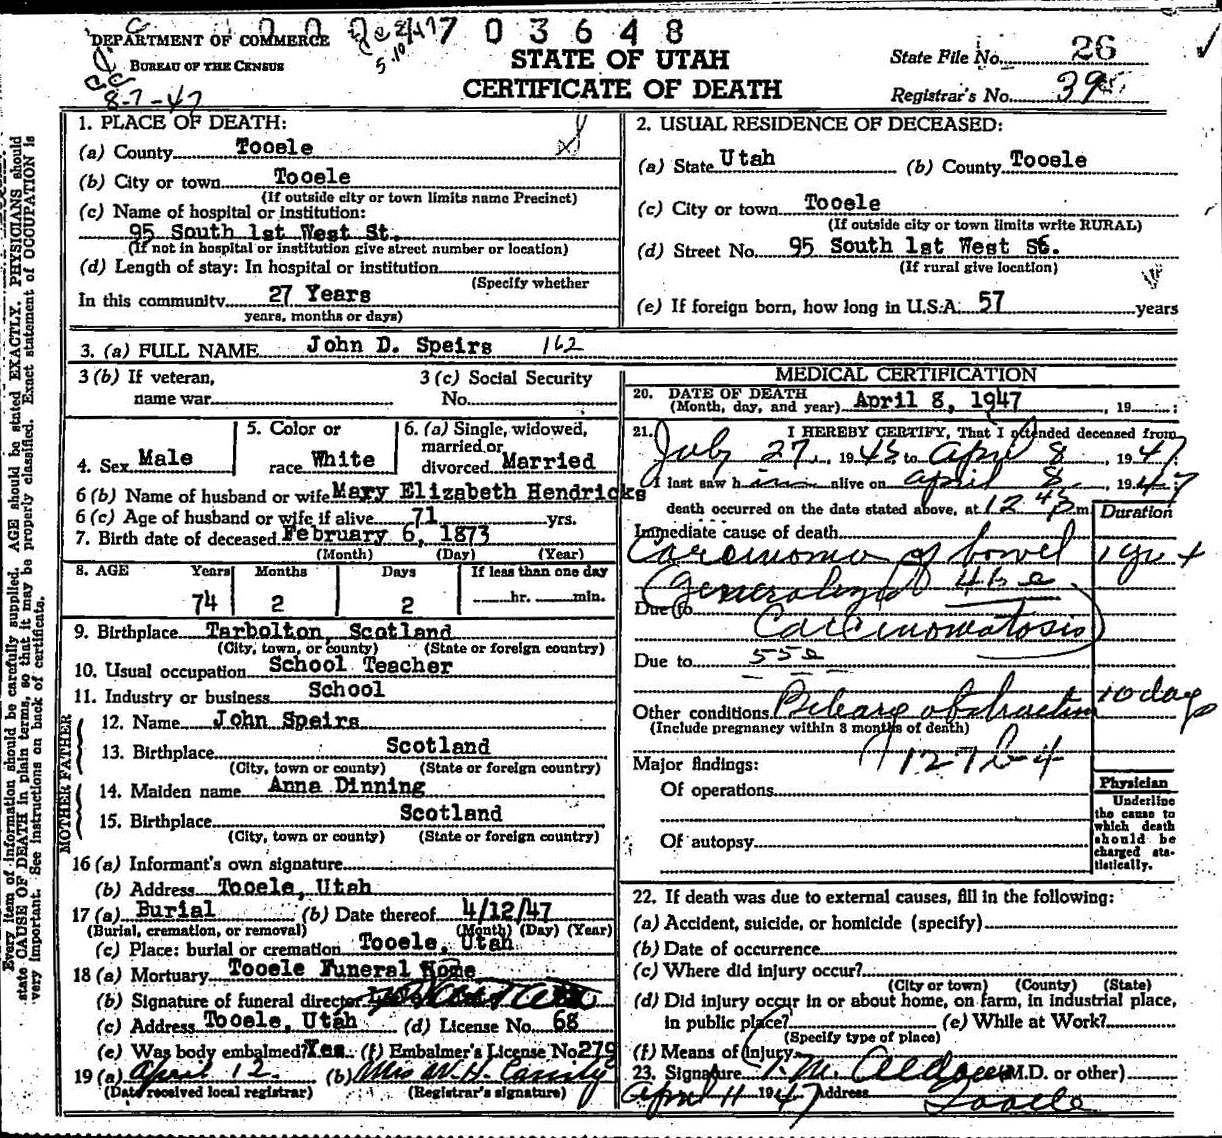 DEPARTMENT OF COMMERCE
BUREAU OF THE CENSUS
8-7-47
703648
STATE OF UTAH
CERTIFICATE OF DEATH
State File No. 26
Registrar's No. 39
Every item of information should be carefully supplied. AGE should be stated EXACTLY. PHYSICIANS should
state CAUSE OF DEATH in plain terms, so that it may be properly classified. Exact statement of OCCUPATION is
very important. See instructions on back of certificate.
1. PLACE OF DEATH:
(a) County Tooele
(b) City or town Tooele
(If outside city or town limits name Precinct)
(c) Name of hospital or institution:
95 South 1st West St.
(If not in hospital or institution give street number or location)
(d) Length of stay: In hospital or institution
(Specify whether
In this community 27 Years
years, months or days)
2. USUAL RESIDENCE OF DECEASED:
(a) State Utah (b) County Tooele
(c) City or town Tooele
(If outside city or town limits write RURAL)
(d) Street No. 95 South 1st West St.
(If rural give location)
(e) If foreign born, how long in U.S.A. 57 years
3. (a) FULL NAME John D. Speirs 162
3 (b) If veteran,
name war
3 (c) Social Security
No.
4. Sex Male
5. Color or
race White
6. (a) Single, widowed,
married or
divorced Married
6 (b) Name of husband or wife Mary Elizabeth Hendricks
6 (c) Age of husband or wife if alive 71 yrs.
7. Birth date of deceased February 6, 1873
(Month) (Day) (Year)
8. AGE Years Months Days If less than one day
74 2 2 hr. min.
9. Birthplace Tarbolton, Scotland
(City, town, or county) (State or foreign country)
10. Usual occupation School Teacher
11. Industry or business School
FATHER
12. Name John Speirs
13. Birthplace Scotland
(City, town or county) (State or foreign country)
MOTHER
14. Maiden name Anna Dinning
15. Birthplace Scotland
(City, town or county) (State or foreign country)
16 (a) Informant's own signature
(b) Address Tooele, Utah
17 (a) Burial (b) Date thereof 4/12/47
(Burial, cremation, or removal) (Month) (Day) (Year)
(c) Place: burial or cremation Tooele, Utah
18 (a) Mortuary Tooele Funeral Home
(b) Signature of funeral director
(c) Address Tooele, Utah (d) License No. 68
(e) Was body embalmed? Yes (f) Embalmer's License No 279
19 (a) April 12. (b) Mrs W. H. Cassity
(Date received local registrar) (Registrar's signature)
MEDICAL CERTIFICATION
20. DATE OF DEATH
(Month, day, and year) April 8, 1947, 19
21. I HEREBY CERTIFY, That I attended deceased from
July 27, 1945, to April 8, 1947
I last saw h im alive on April 8, 1947
death occurred on the date stated above, at 12 45 m
Duration
Immediate cause of death
Carcinoma of bowel 1 yr +
Generalized 46 e
Due to
Carcinomatosis
Due to 55 e
Other conditions Biliary obstruction 10 days
(Include pregnancy within 3 months of death)
127 b-4
Major findings:
Of operations
Of autopsy
Physician
Underline
the cause to
which death
should be
charged sta-
tistically.
22. If death was due to external causes, fill in the following:
(a) Accident, suicide, or homicide (specify)
(b) Date of occurrence
(c) Where did injury occur?
(City or town) (County) (State)
(d) Did injury occur in or about home, on farm, in industrial place,
in public place? (e) While at Work?
(Specify type of place)
(f) Means of Injury
23. Signature M. (M.D. or other)
April 11 1947 Address Tooele